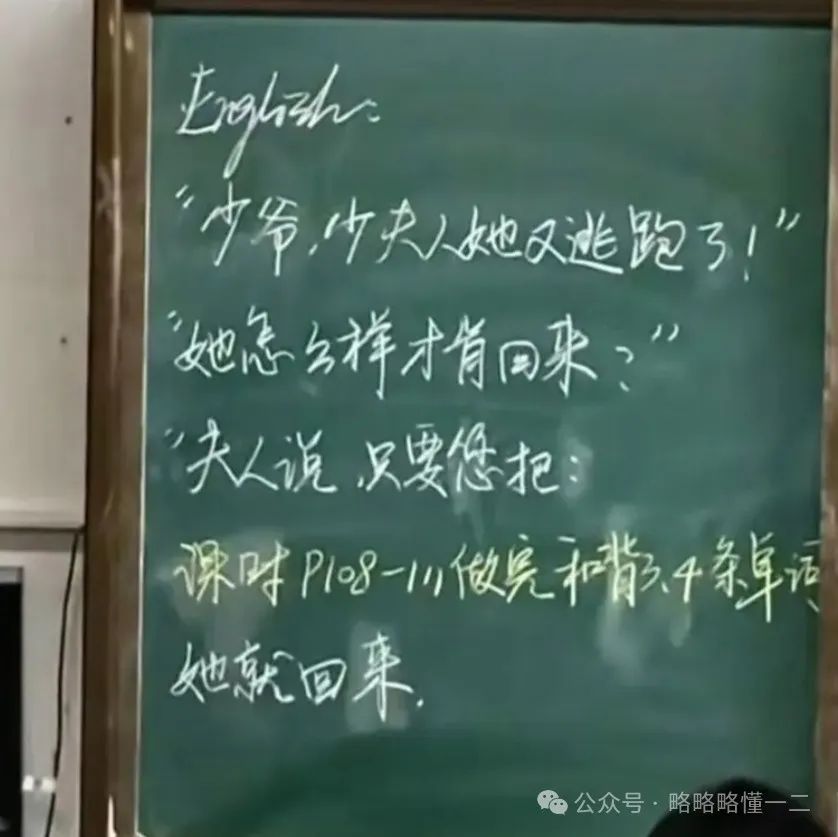 English:
“少爷,少夫人她又逃跑了!”
“她怎么样才肯回来?”
“夫人说,只要您把:
课时P108-111做完和背3、4条单词
她就回来.
公众号·略略略懂一二